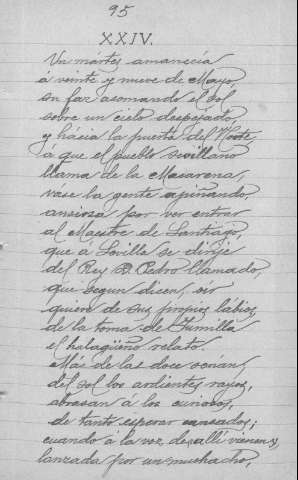 95
XXIV.
Un mártes amanecía
á veinte y nueve de Mayo,
su faz asomando el sol
sobre un cielo despejado,
y hácia la puerta del Norte,
á que el pueblo sevillano
llama de la Macarena,
váse la gente apiñando,
ansiosa por ver entrar
al Maestre de Santiago,
que á Sevilla se dirije
del Rey D. Pedro llamado,
que segun dicen, oir
quiere de sus própios lábios,
de la toma de Jumilla
el halagüeño relato.
Más de las doce serían;
del sol los ardientes rayos,
abrasan á los curiosos,
de tanto esperar cansados;
cuando á la voz de allí vienen,
lanzada por un muchacho,